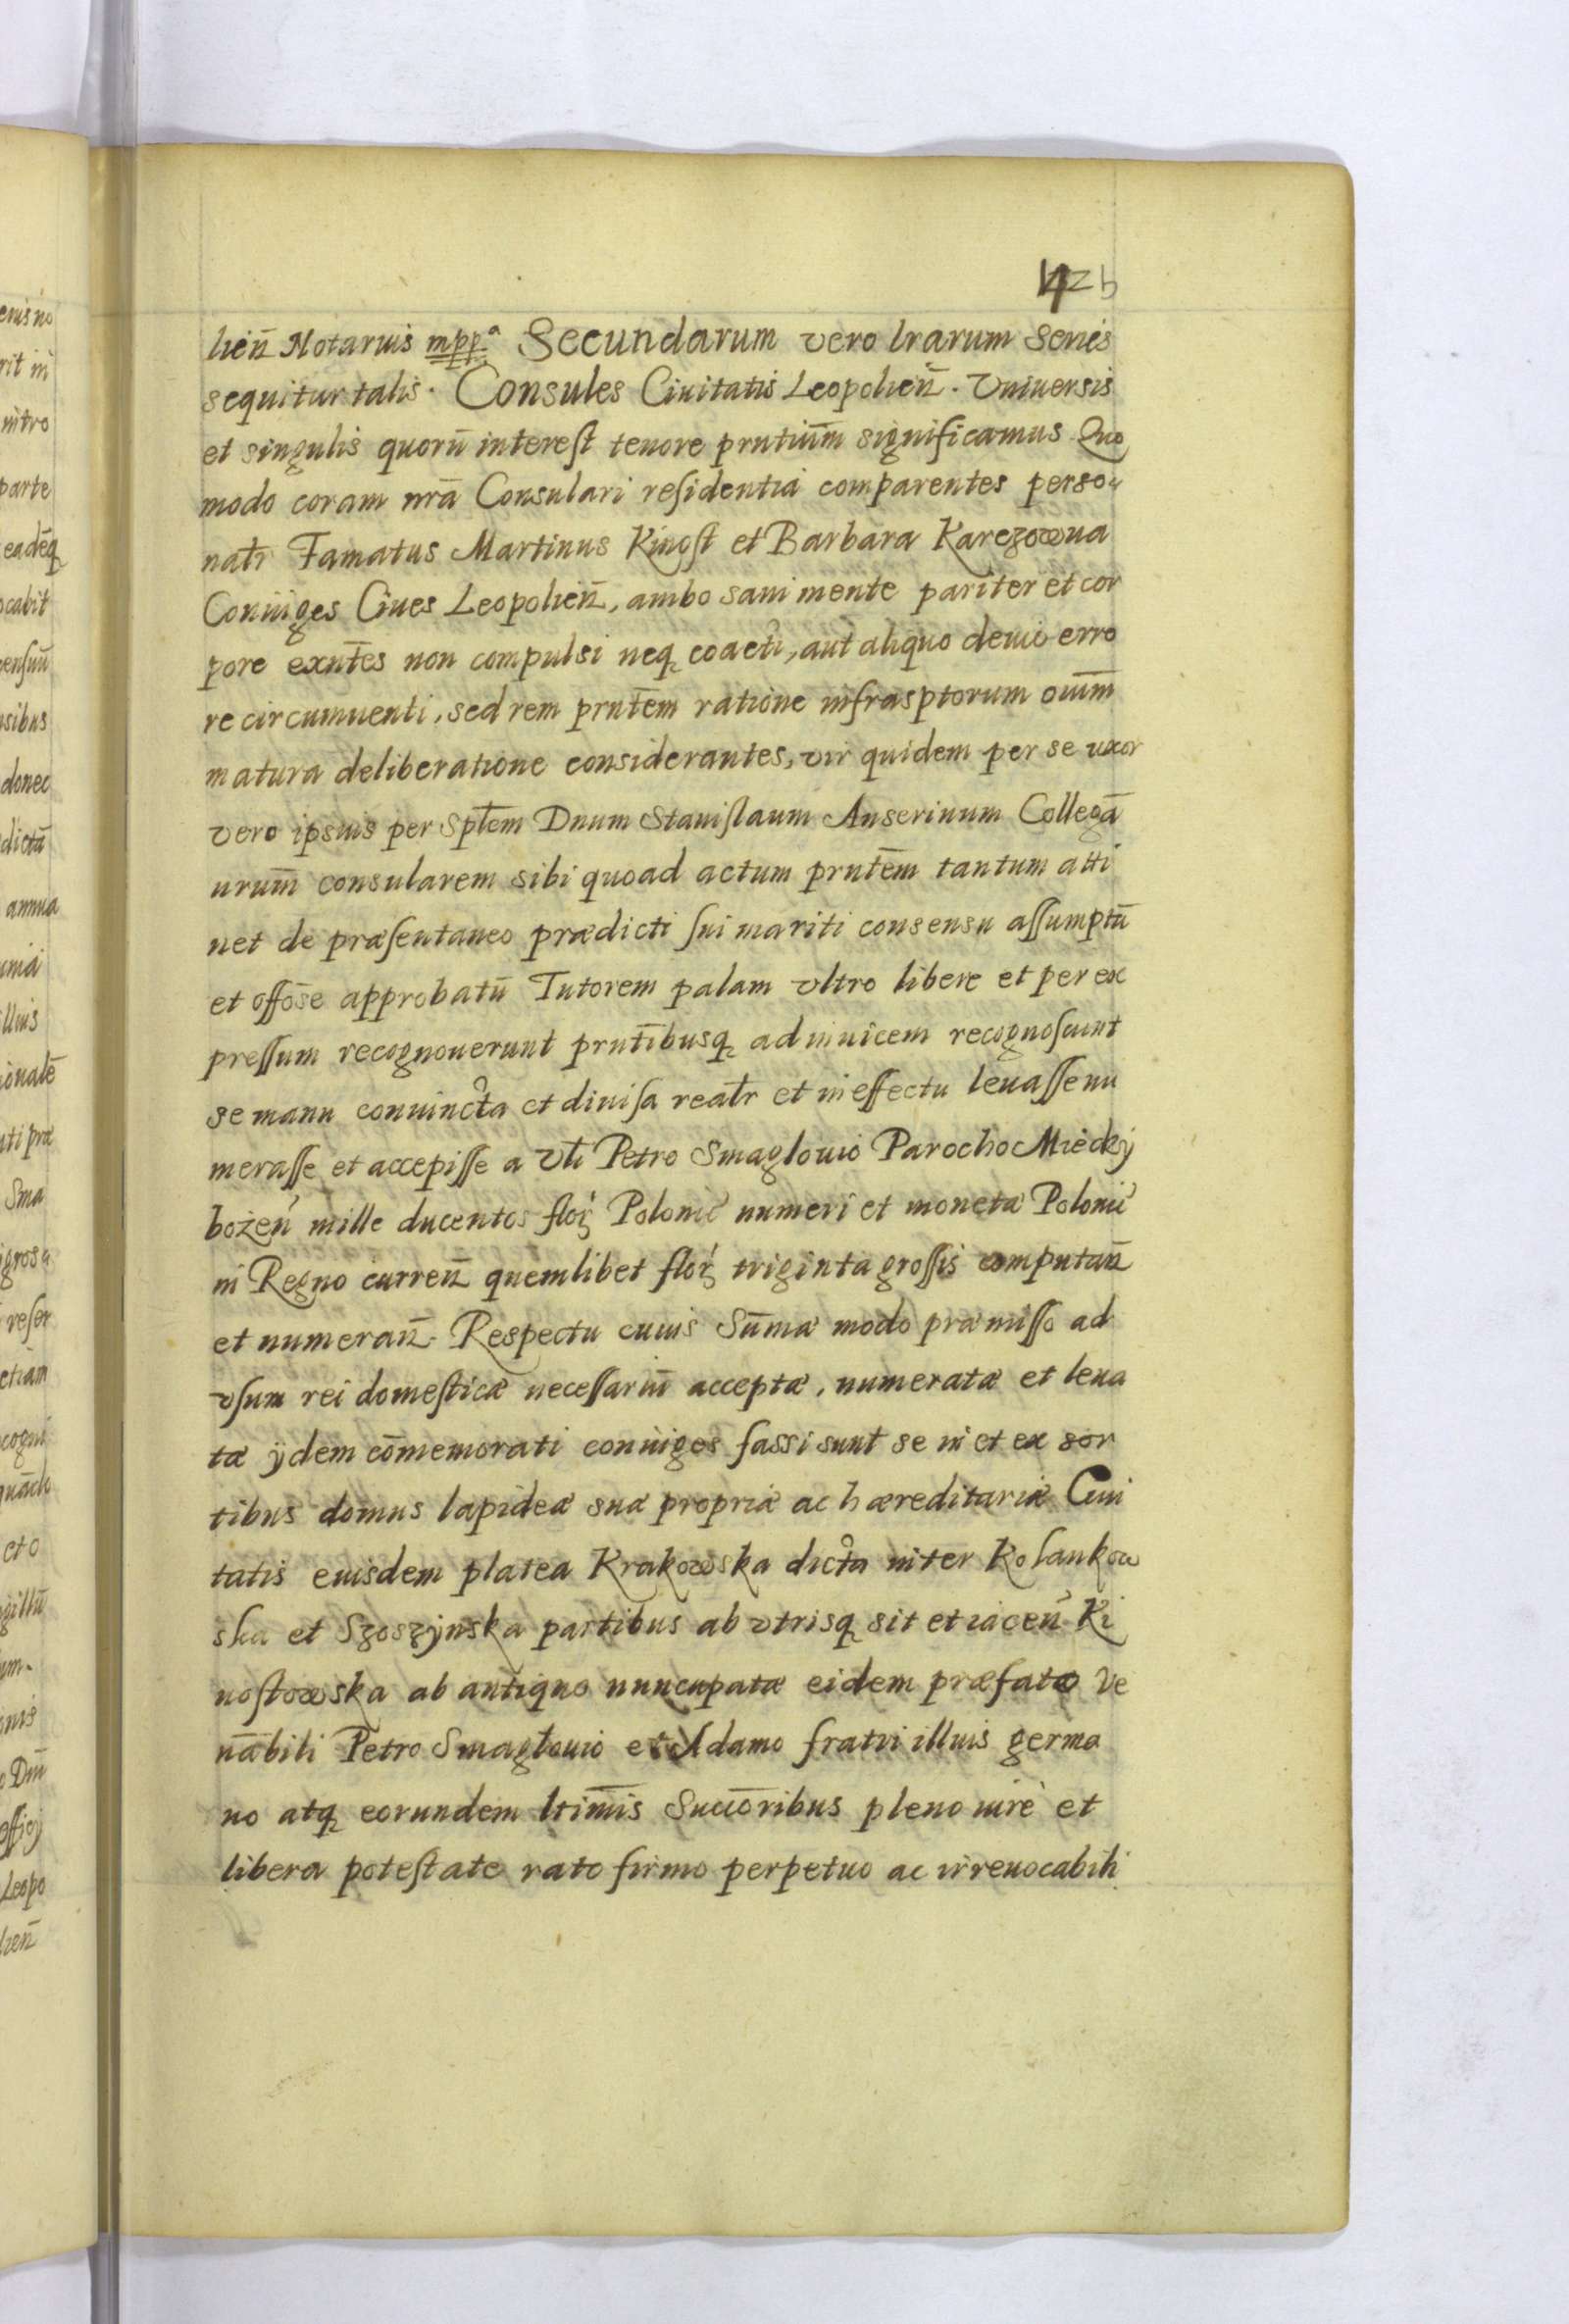 42b
lień Notarius mppa Secundarum vero lrarum Series
sequitur talis. Consules Ciuitatis Leopolień. Vniuersis
et singulis quorū interest tenore prntiūm significamus Quo
modo coram nrā Consulari residentia comparentes perso-
natr Famatus Martinus Kinost et Barbara Karczowna
Coniuges Ciues Leopolień, ambo sani mente pariter et cor
pore exntes non compulsi neq coacti, aut aliquo deuio erro
re circumuenti, sed rem prntem ratione infrasptorum oium
matura deliberatione considerantes, vir quidem per se uxor
vero ipsius per Sptem Dnum Stanislaum Anserinum Collegā
nrum consularem sibi quoad actum prntem tantum atti
net de præsentaneo prædicti sui mariti consensu assumptū
et offose approbatū Tutorem palam vltro libere et per ex
pressum recognouerunt prntibusq ad inuicem recognoscunt
se manu conuincta et diuisa realr et in effectu leuasse nu
merasse et accepisse a Vli Petro Smaglouio Parocho Miedzy
bożeń mille ducentos flor Polonic numeri et monetæ Polonic
in Regno curreń quemlibet flor triginta grossis computań
et numerań. Respectu cuius Sūmæ modo præmisso ad
vsum rei domesticæ necessariū acceptæ, numeratæ et leua
tæ ijdem cōmemorati coniuges fassi sunt se in et ex sor
tibus domus lapideæ suæ propriæ ac hæreditariæ Ciui
tatis eiusdem platea Krakowska dicta inter Kolankow
ska et Szoszynska partibus ab vtrisq sit et iaceń Ki
nostowska ab antiquo nuncupatæ eidem præfato Ve
nābili Petro Smaglouio et Adamo fratri illius germa
no atq eorundem ltimis Succoribus pleno iure et
libera potestate rato firmo perpetuo ac irreuocabili